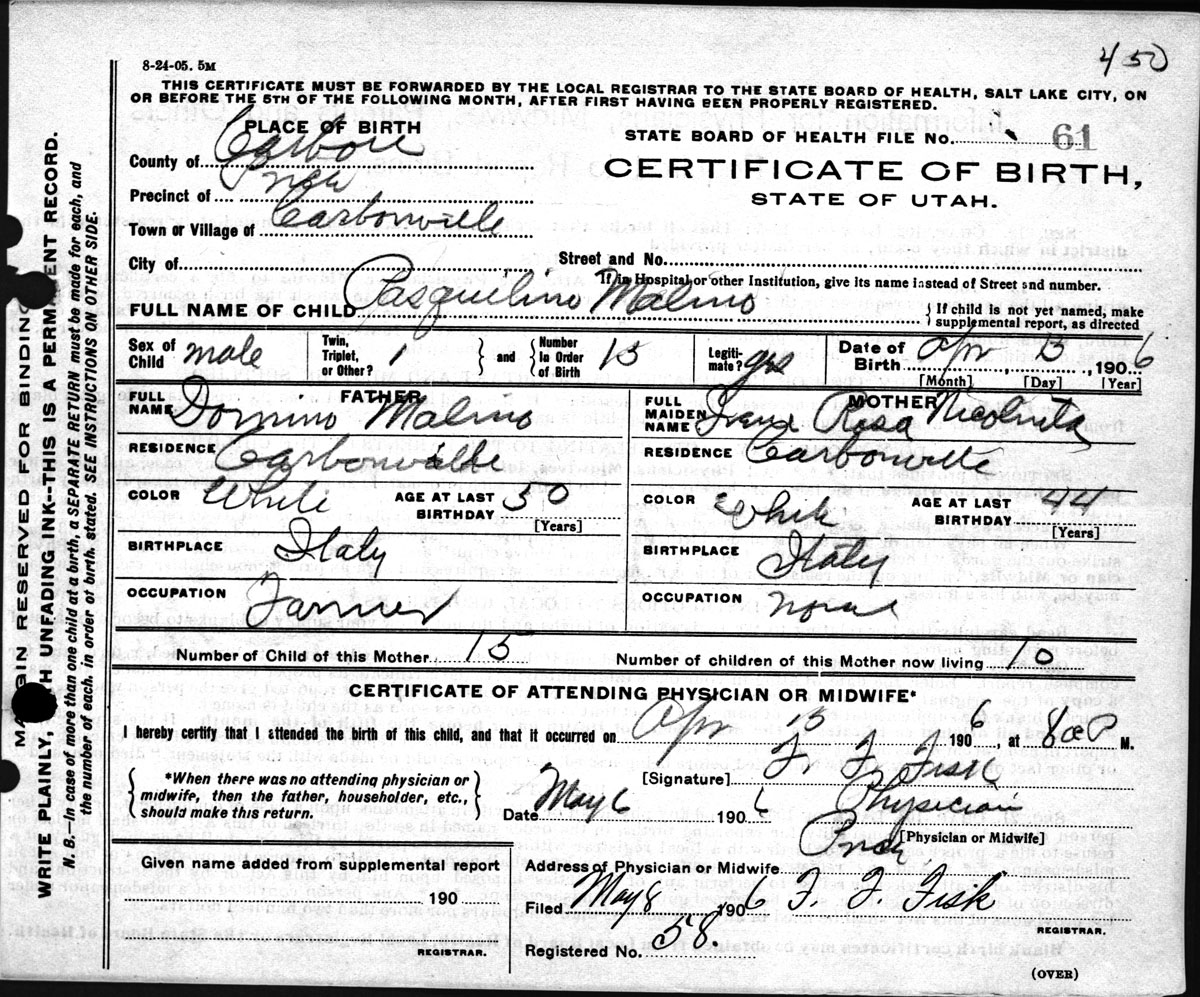 450
8-24-05. 5M
THIS CERTIFICATE MUST BE FORWARDED BY THE LOCAL REGISTRAR TO THE STATE BOARD OF HEALTH, SALT LAKE CITY, ON
OR BEFORE THE 5TH OF THE FOLLOWING MONTH, AFTER FIRST HAVING BEEN PROPERLY REGISTERED.
PLACE OF BIRTH
STATE BOARD OF HEALTH FILE No. 61
County of Carbon
CERTIFICATE OF BIRTH,
Precinct of Price
STATE OF UTAH.
Town or Village of Carbonville
City of
Street and No.
If in Hospital or other Institution, give its name instead of Street and number.
FULL NAME OF CHILD Pasquilino Malmo
{ If child is not yet named, make
supplemental report, as directed
Sex of Child male
Twin, Triplet, or Other? 1 } and { Number In Order of Birth 15
Legiti- mate? yes
Date of Birth Apr 15, 1906
[Month] [Day] [Year]
FATHER
FULL NAME Domino Malmo
RESIDENCE Carbonville
COLOR White AGE AT LAST BIRTHDAY 50
[Years]
BIRTHPLACE Italy
OCCUPATION Farmer
MOTHER
FULL MAIDEN NAME Rosa
RESIDENCE Carbonville
COLOR White AGE AT LAST BIRTHDAY 44
[Years]
BIRTHPLACE Italy
OCCUPATION None
Number of Child of this Mother 15
Number of children of this Mother now living 10
CERTIFICATE OF ATTENDING PHYSICIAN OR MIDWIFE*
I hereby certify that I attended the birth of this child, and that it occurred on Apr 15 1906, at 8 P M.
{ *When there was no attending physician or
midwife, then the father, householder, etc.,
should make this return. }
[Signature] F. F. Fisk
Date May 6 1906 Physician
[Physician or Midwife]
Given name added from supplemental report
190
REGISTRAR.
Address of Physician or Midwife Price
Filed May 8 1906 F. F. Fisk
REGISTRAR.
Registered No. 58.
(OVER)
MARGIN RESERVED FOR BINDING
WRITE PLAINLY, WITH UNFADING INK--THIS IS A PERMANENT RECORD.
N. B.—In case of more than one child at a birth, a SEPARATE RETURN must be made for each, and
the number of each, in order of birth, stated. SEE INSTRUCTIONS ON OTHER SIDE.